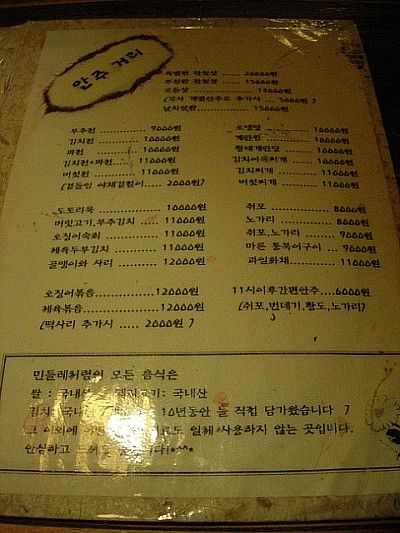 안주 거리
특별한 잔칫상 ...... 20000원
푸짐한 잔칫상 ...... 15000원
모듬상 ............... 13000원
15000원
부추전 ............ 9000원
김치전 ............ 10000원
파전 ............... 10000원
김치전+파전 ...... 11000원
버섯전 ............ 11000원
(곁들임 야채겉절이 ...... 2000원)
오뎅탕 ............ 10000원
계란찜 ............ 10000원
황태계란탕 ...... 10000원
김치어묵찌개 ...... 11000원
김치찌개 ............ 11000원
버섯찌개 ............ 11000원
도토리묵 .................. 10000원
버섯고기,부추김치 ...... 11000원
오징어숙회 ............... 11000원
제육두부김치 ............ 11000원
골뱅이와 사리 ............ 12000원
쥐포 .................. 8000원
노가리 ............... 8000원
쥐포,노가리 ......... 9000원
마른 통북어구이 ... 9000원
과일화채 ............ 11000원
오징어볶음 ............ 12000원
제육볶음 ............... 12000원
(떡사리 추가시 ..... 2000원)
11시이후간편안주 .... 6000원
(쥐포,번데기,황도,노가리)
민들레처럼의 모든 음식은
쌀 : 국내산 국내산
김치: 국내산 10년동안 늘 직접 담가왔습니다 )
그 이외에 일체 사용하지 않는 곳입니다.
안심하고 *^^*